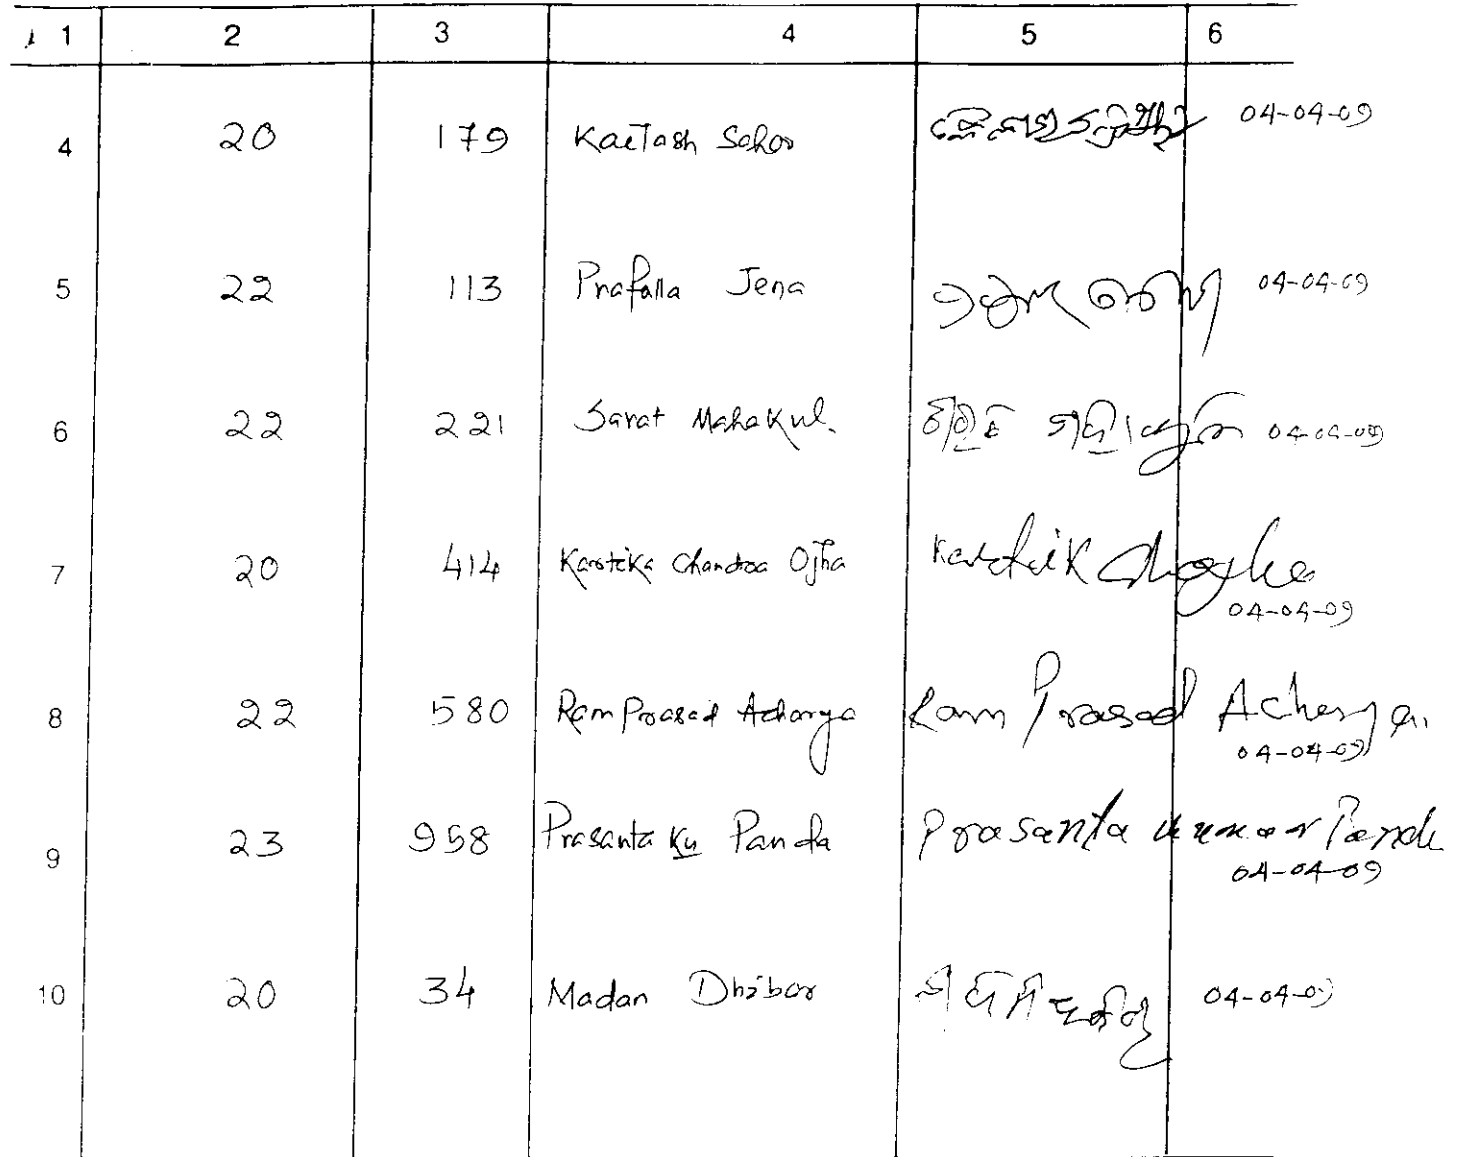 1 2 3 4 5 6
4 20 179 Kailash Sahoo 04-04-09
5 22 113 Prafulla Jena 04-04-09
6 22 221 Sarat Mahakul. 04-04-09
7 20 414 Kartika Chandra Ojha
04-04-09
8 22 580 Ram Prasad Acharya Ram Prasad Acharya
04-04-09
9 23 958 Prasanta Ku Panda Prasanta Kumar Panda
04-04-09
10 20 34 Madan Dhibar 04-04-09